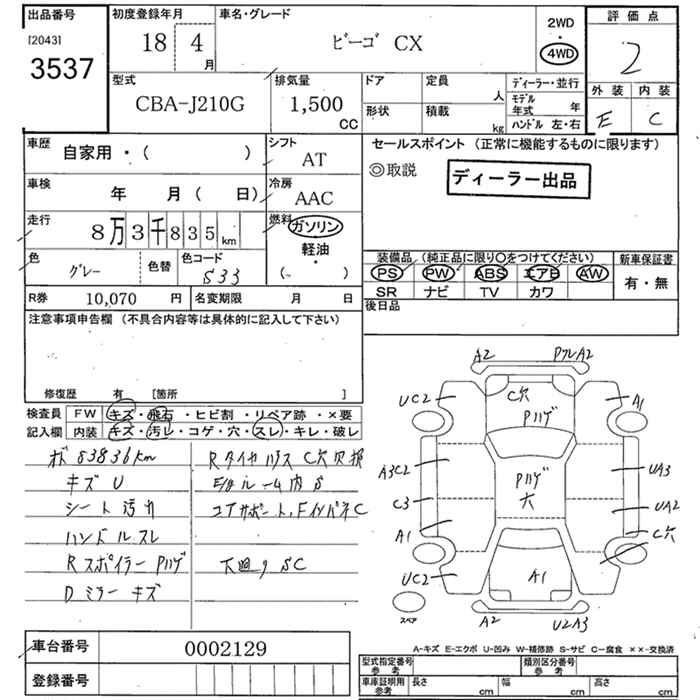 出品番号
[2043]
3537
初度登録年月
18 4 月
車名・グレード
ビーゴ CX
2WD
・
4WD
評価点
2
外装 内装
E C
型式
CBA-J210G
排気量
1,500
CC
ドア 定員 人
形状 積載 kg
ディーラー・並行
モデル年式 年
ハンドル 左・右
車歴
自家用・( )
シフト
AT
車検
年 月( 日)
冷房
AAC
走行
8万3千835km
燃料
ガソリン
軽油
・
( )
色
グレー
色替
色コード
S33
R券 10,070 円
名変期限 月 日
セールスポイント (正常に機能するものに限ります)
◎取説
ディーラー出品
装備品 (純正品に限り○をつけてください)
PS PW ABS エアB AW
SR ナビ TV カワ
新車保証書
有・無
後日品
注意事項申告欄 (不具合内容等は具体的に記入して下さい)
修復歴 有 [箇所 ]
検査員記入欄
FW キズ・飛石・ヒビ割・リペア跡・×要
内装 キズ・汚レ・コゲ・穴・スレ・キレ・破レ
83836km
キズ U
シート汚れ
ハンドルスレ
Rスポイラー Pハゲ
Dミラー キズ
C穴欠損
コアサポート、FインパネC
下廻り SC
A2 PフルA2
UC2 C穴 A1
Pハゲ
A3C2 Pハゲ UA3
穴
C3 UA2
A1 C穴
UC2 A1
スペア
A2 U2A3
車台番号 0002129
登録番号
A-キズ E-エクボ U-凹み W-補修跡 S-サビ C-腐食 ××-交換済
型式指定番号 参考
類別区分番号 参考
車庫証明用 参考
長さ cm 幅 cm 高さ cm